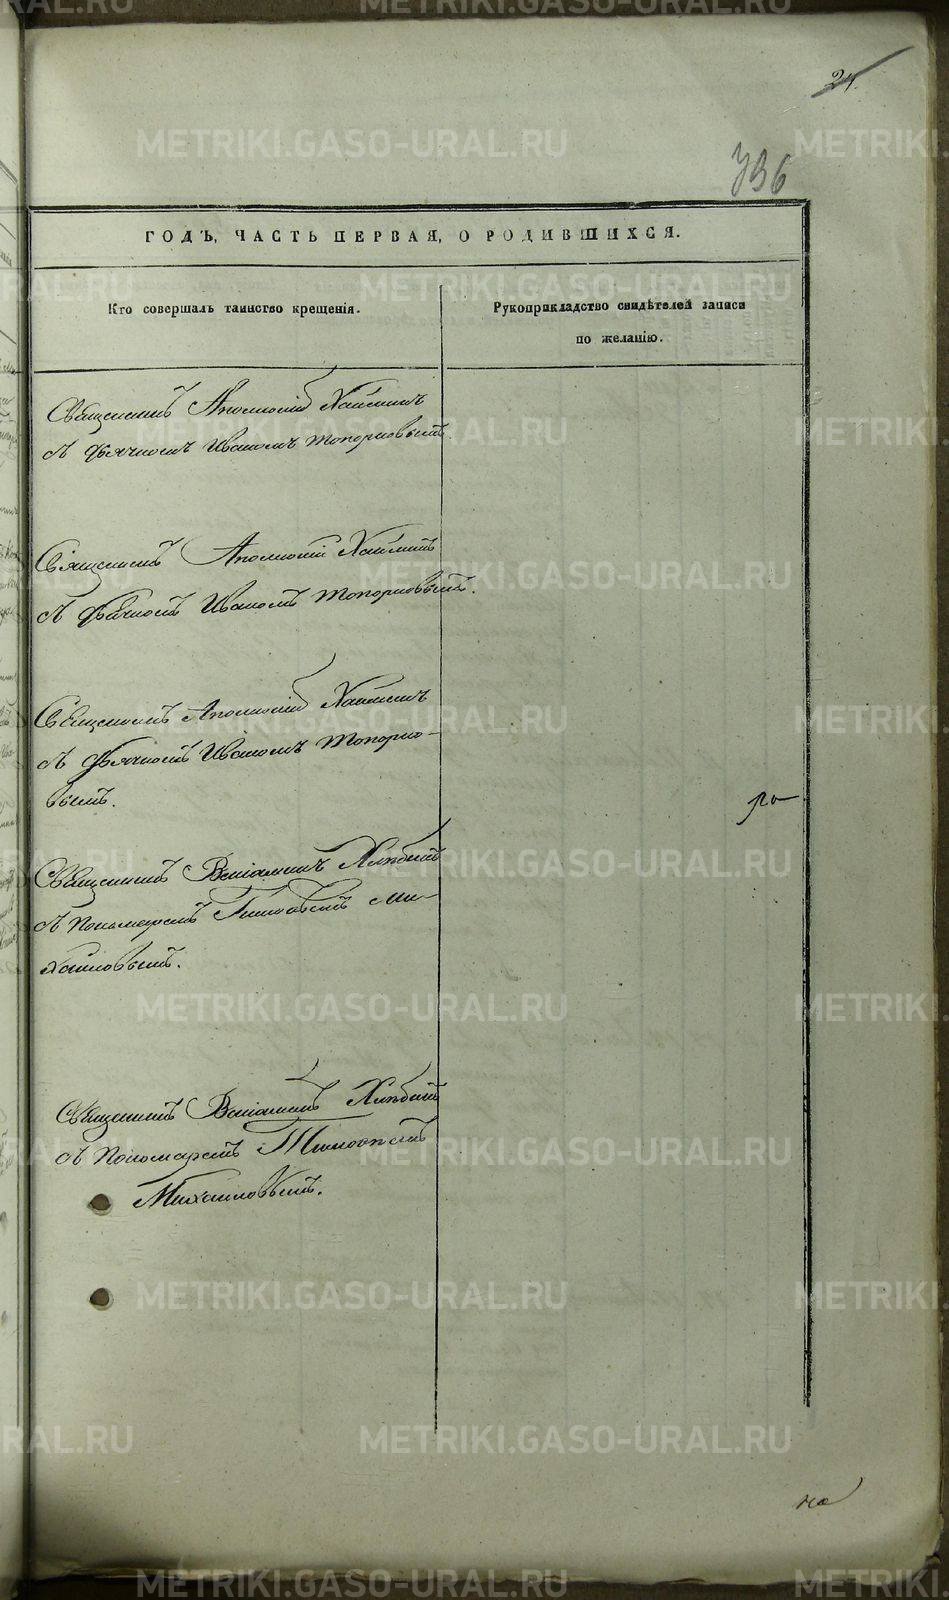 24.
736
ГОДЪ, ЧАСТЬ ПЕРВАЯ, О РОДИВШИХСЯ.
Кто совершалъ таинство крещенія.
Рукоприкладство свидѣтелей записи
по желанію.
Священникъ Аполлоній
съ Дьячкомъ Иваномъ Топорковымъ.
Священникъ Аполлоній
съ Дьячкомъ Иваномъ Топорковымъ.
Священникъ Аполлоній
съ Дьячкомъ Иваномъ Топорко-
вымъ.
Священникъ Веніаминъ Хлѣбинъ
съ Пономаремъ Тимоѳеемъ Ми-
хайловымъ.
Священникъ Веніаминъ Хлѣбинъ
съ Пономаремъ Тимоѳеемъ
Михайловымъ.
METRIKI.GASO-URAL.RU